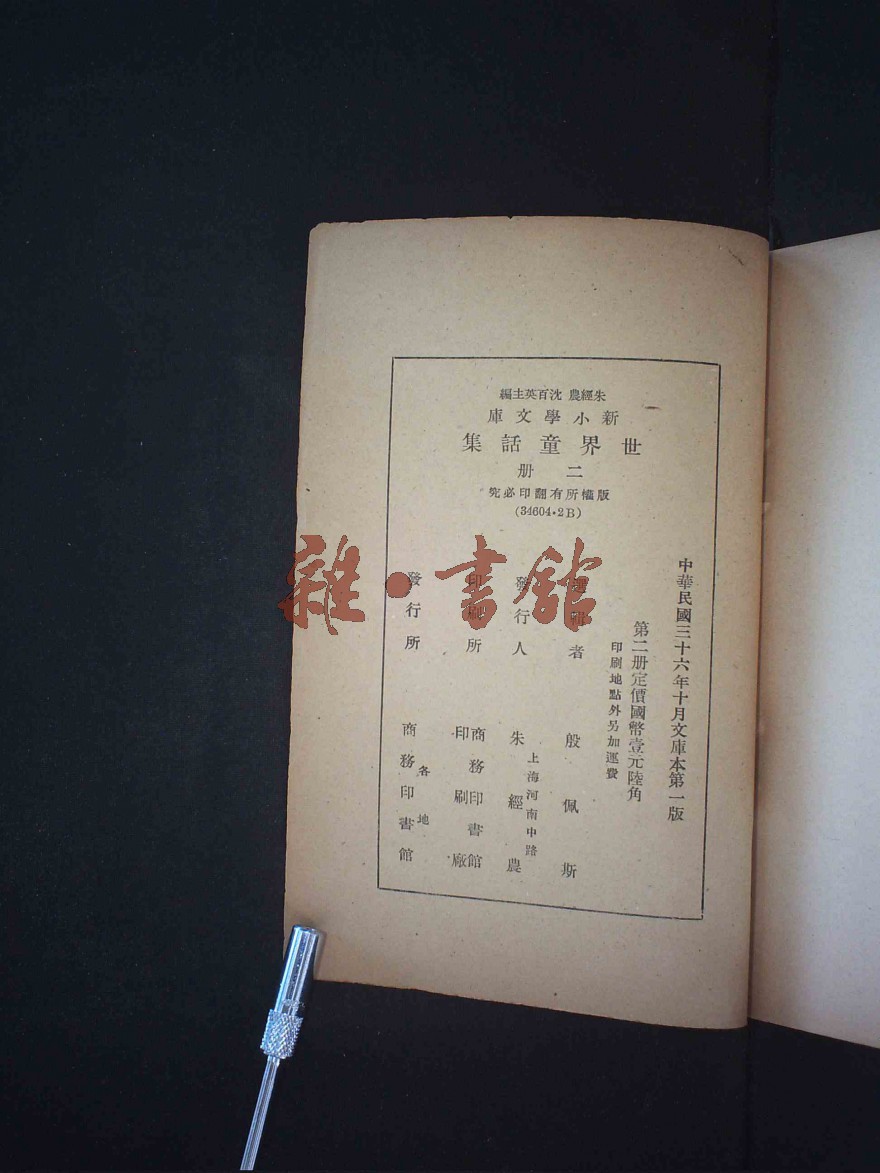 朱經農 沈百英主編
新小學文庫
世界童話集
二册
版權所有翻印必究
(34604·2B)
中華民國三十六年十月文庫本第一版
第二册定價國幣壹元陸角
印刷地點外另加運費
選輯者 殷佩斯
發行人 朱經農
上海河南中路
印刷所 商務印書館
印刷廠
發行所 各地
商務印書館
雜·書館